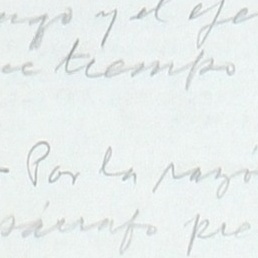 y el eje
tiempo
- Por la razó
párrafo pre